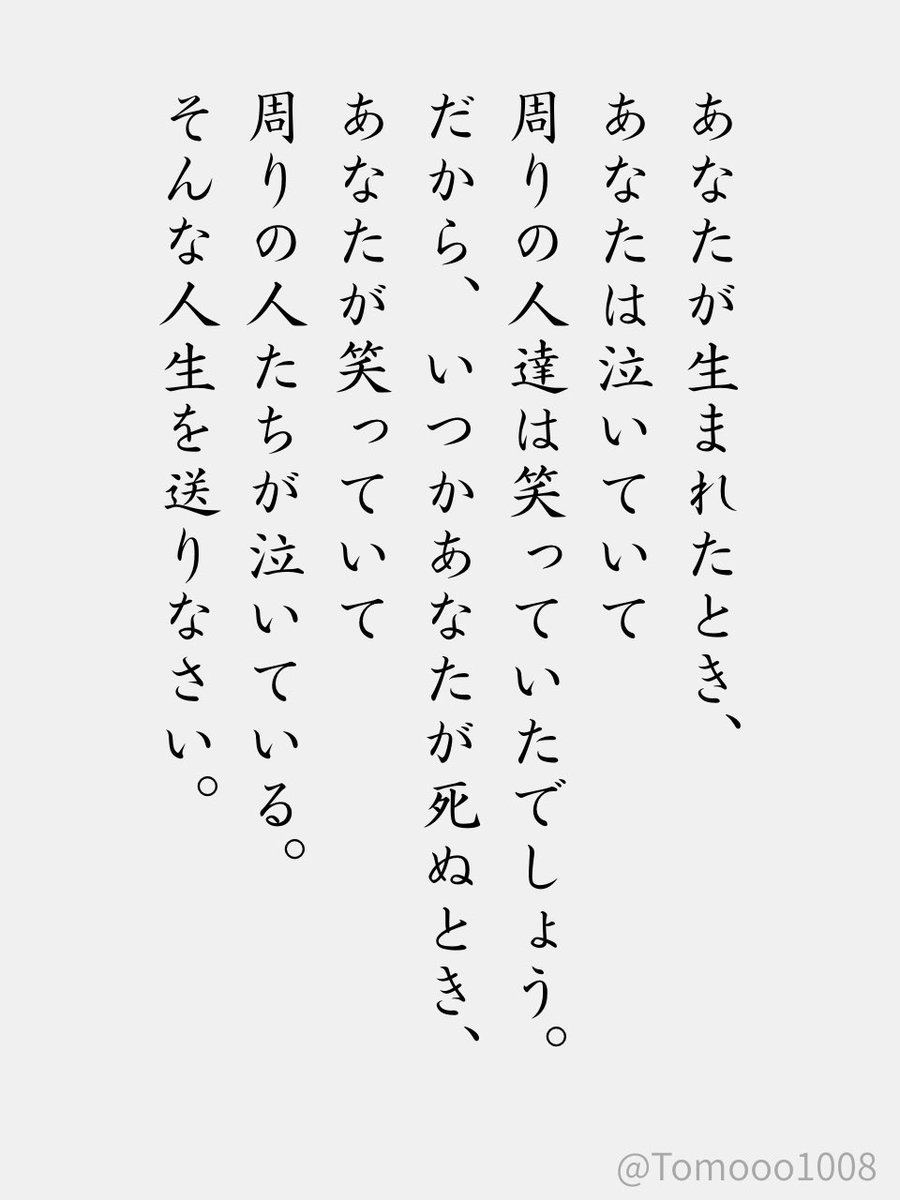 あなたが生まれたとき、
あなたは泣いていて
周りの人達は笑っていたでしょう。
だから、いつかあなたが死ぬとき、
あなたが笑っていて
周りの人たちが泣いている。
そんな人生を送りなさい。
@Tomooo1008